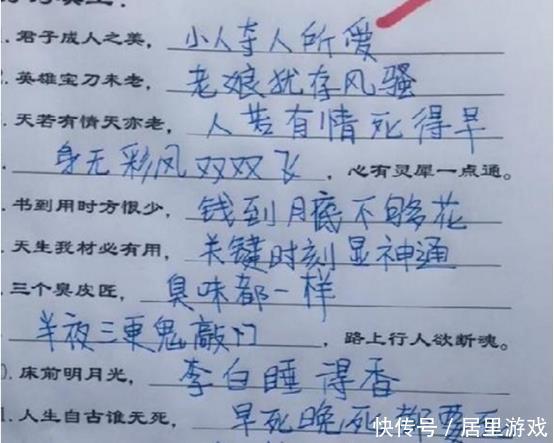 . 君子成人之美，小人夺人所爱
. 英雄宝刀未老，老娘犹存风骚
. 天若有情天亦老，人若有情死得早
身无彩风双双飞，心有灵犀一点通。
. 书到用时方恨少，钱到月底不够花
. 天生我材必有用，关键时刻显神通
. 三个臭皮匠，臭味都一样
半夜三更鬼敲门，路上行人欲断魂。
. 床前明月光，李白睡得香
. 人生自古谁无死，早死晚死都要死
快传号/居里游戏